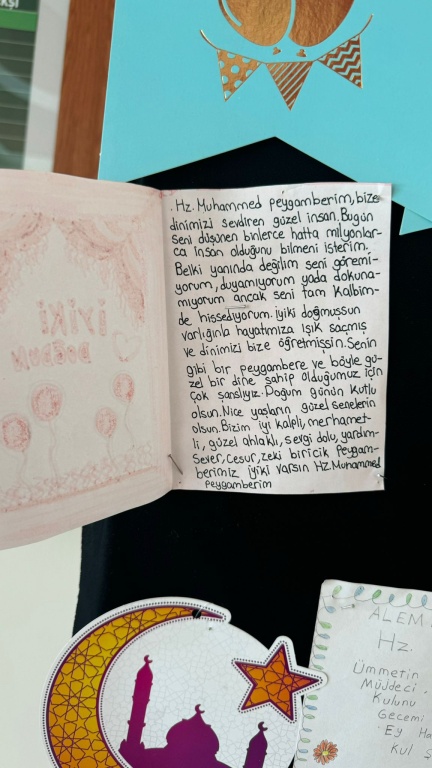 . Hz. Muhammed peygamberim, bize
dinimizi sevdiren güzel insan. Bugün
seni düşünen binlerce hatta milyonlar-
ca insan olduğunu bilmeni isterim.
Belki yanında değilim seni göremi-
yorum, duyamıyorum yada dokuna-
mıyorum ancak seni tam kalbim-
de hissediyorum. iyiki doğmuşsun
varlığınla hayatımıza ışık saçmış
ve dinimizi bize öğretmişsin. Senin
gibi bir peygambere ve böyle gü-
zel bir dine sahip olduğumuz için
çok şanslıyız. Doğum günün kutlu
olsun. Nice yaşların güzel senelerin
olsun. Bizim iyi kalpli, merhamet-
li, güzel ahlaklı, sevgi dolu, yardım-
sever, cesur, zeki biricik peygam-
berimiz iyiki varsın Hz. Muhammed
peygamberim
iyiki
DOĞDUN
ALEM
Hz.
Ümmetin
Müjdeci
Kulunu
Gecemi
Ey Ha
Kul Ş